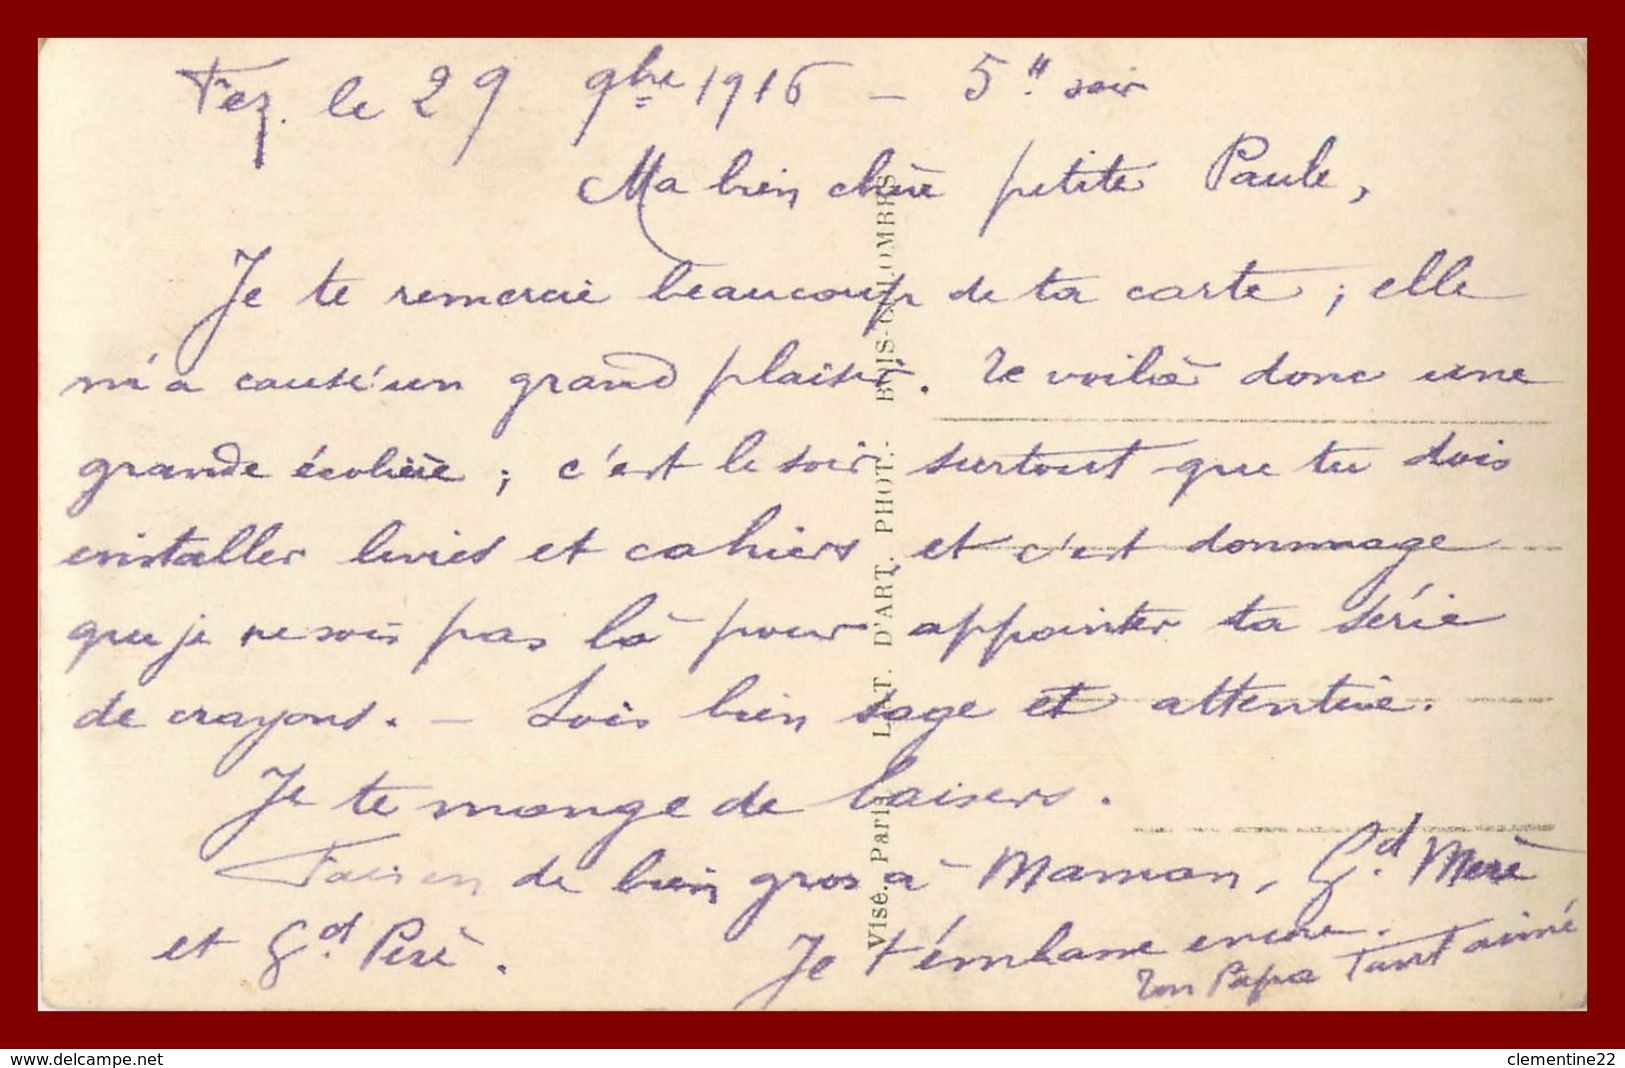 Fez. le 29 9bre 1916 - 5H soir
Ma bien chère petite Paule,
Je te remercie beaucoup de ta carte ; elle
m'a causé un grand plaisir. Te voilà donc une
grande écolière ; c'est le soir surtout que tu dois
installer livres et cahiers et c'est dommage
que je ne sois pas là pour appointer ta série
de crayons. - Sois bien sage et attentive.
Je te mange de baisers.
Fais en de bien gros à Maman, Gd. Mère
et Gd. Père. Je t'embrasse encore.
Ton Papa Tant aimé
Visé. Paris LAT. D'ART. PHOT. - BOIS-COLOMBES
www.delcampe.net
clementine22